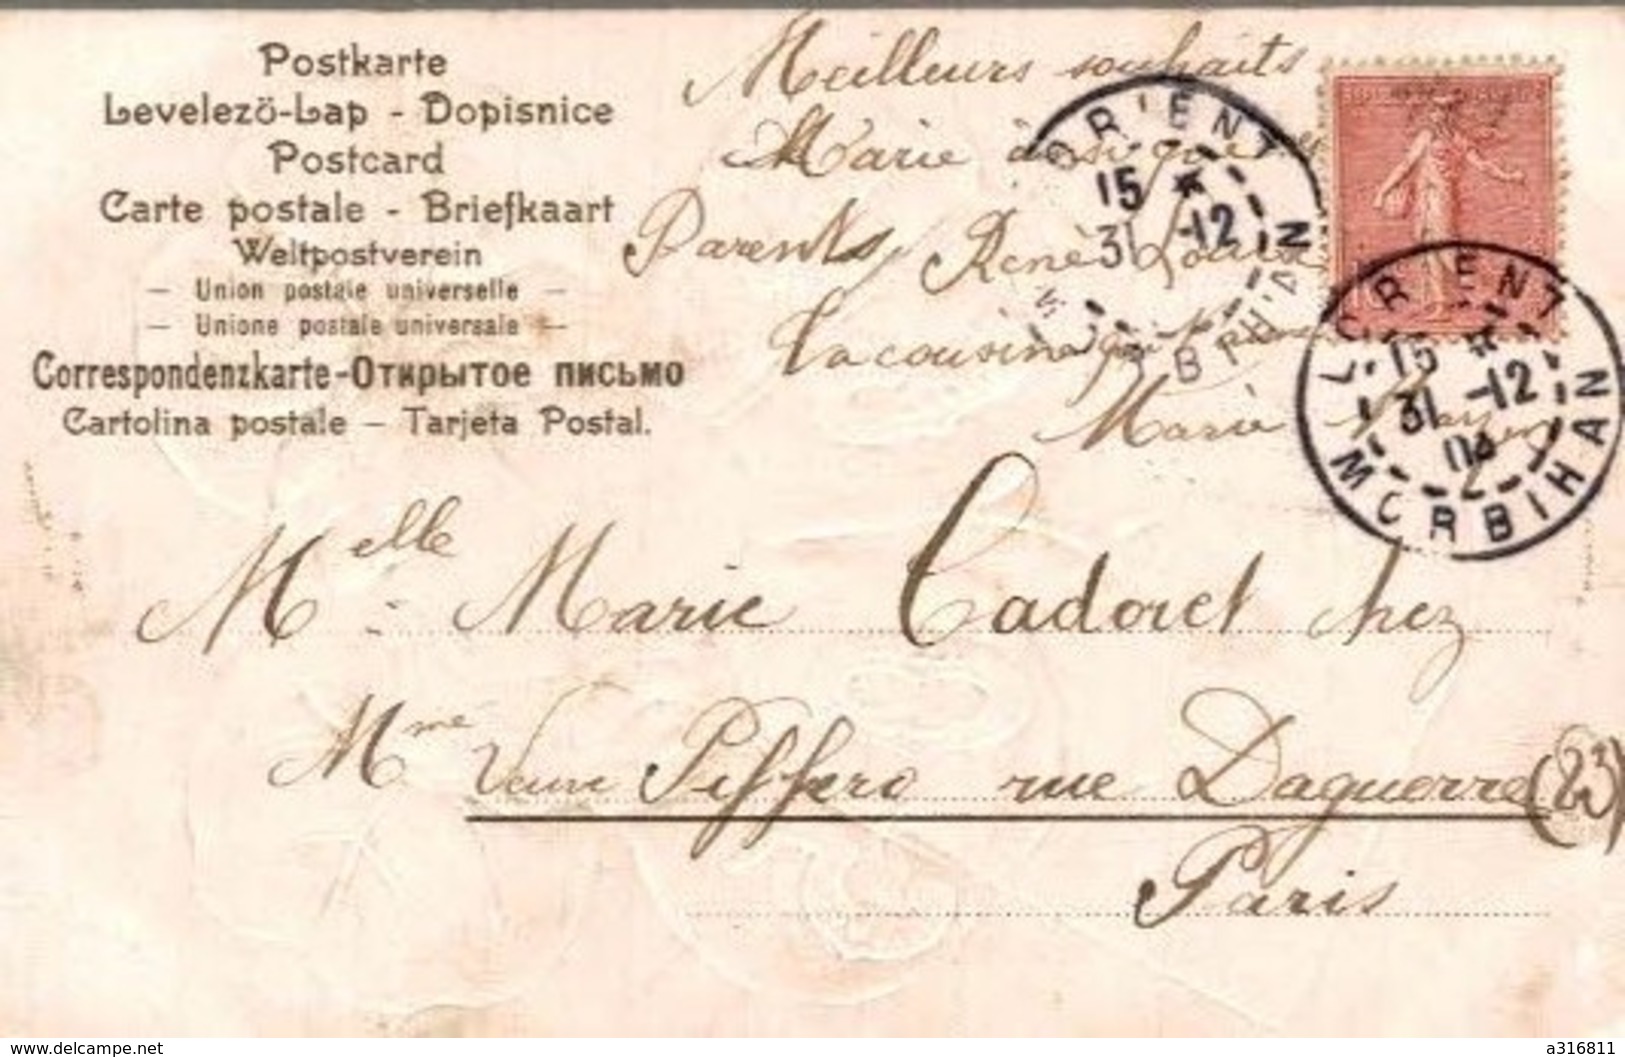 Postkarte
Levelezö-Lap - Dopisnice
Postcard
Carte postale - Briefkaart
Weltpostverein
— Union postale universelle —
— Unione postale universale —
Correspondenzkarte-Открытое письмо
Cartolina postale — Tarjeta Postal.
Meilleurs souhaits
Marie à
Parents, René Louise
La cousine qui
Marie
ORIENT
15 *
31 -12
BIHAN
LORIENT
15 *
31 -12
04
MORBIHAN
Melle Marie Cadoret chez
Mme Veuve Piffero rue Daguerre (23)
Paris
www.delcampe.net
a316811